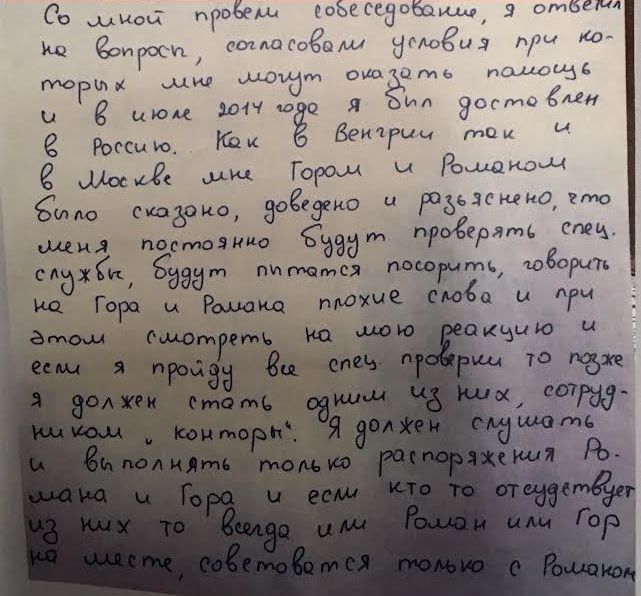 Со мной провели собеседование, я ответил
на вопросы, согласовали условия при ко-
торых мне могут оказать помощь
и в июле 2014 года я был доставлен
в Россию. Как в Венгрии так и
в Москве мне Гором и Романом
было сказано, доведено и разьяснено, что
меня постоянно будут проверять спец.
службы, будут питатся посорить, говорить
на Гора и Романа плохие слова и при
этом смотреть на мою реакцию и
если я пройду все спец. проверки то позже
я должен стать одним из них, сотруд-
ником „конторы". Я должен слушать
и выполнять только распоряжения Ро-
мана и Гора и если кто то отсудствует
из них то всегда или Роман или Гор
на месте, советоватся только с Романом